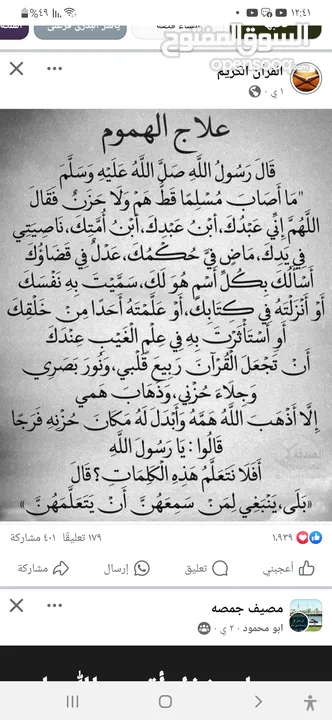 ١٢:٤١
%٤٩
السوق المفتوح
opensooq.com
القرآن الكريم
١ ي
علاج الهموم
قَالَ رَسُولُ اللَّهِ صَلَّ اللَّهُ عَلَيْهِ وَسَلَّمَ
"مَا أَصَابَ مُسْلِمًا قَطُّ هَمٌّ وَلَا حَزَنٌ فَقَالَ
اللَّهُمَّ إِنِّي عَبْدُكَ، ابْنُ عَبْدِكَ، ابْنُ أَمَتِكَ، نَاصِيَتِي
فِي يَدِكَ، مَاضٍ فِيَّ حُكْمُكَ، عَدْلٌ فِيَّ قَضَاؤُكَ
أَسْأَلُكَ بِكُلِّ اسْمٍ هُوَ لَكَ، سَمَّيْتَ بِهِ نَفْسَكَ
أَوْ أَنْزَلْتَهُ فِي كِتَابِكَ، أَوْ عَلَّمْتَهُ أَحَدًا مِنْ خَلْقِكَ
أَوِ اسْتَأْثَرْتَ بِهِ فِي عِلْمِ الْغَيْبِ عِنْدَكَ
أَنْ تَجْعَلَ الْقُرْآنَ رَبِيعَ قَلْبِي، وَنُورَ بَصَرِي
وَجِلَاءَ حُزْنِي، وَذَهَابَ هَمِّي
إِلَّا أَذْهَبَ اللَّهُ هَمَّهُ وَأَبْدَلَ لَهُ مَكَانَ حُزْنِهِ فَرَجًا
قَالُوا: يَا رَسُولَ اللَّهِ
أَفَلَا نَتَعَلَّمُ هَذِهِ الْكَلِمَاتِ؟ قَالَ
«بَلَى، يَنْبَغِي لِمَنْ سَمِعَهُنَّ أَنْ يَتَعَلَّمَهُنَّ»
١٬٩٣٩
١٧٩ تعليقًا ٤٠١ مشاركة
أعجبني
تعليق
إرسال
مشاركة
مصيف جمصه
ابو محمود ٢ ي